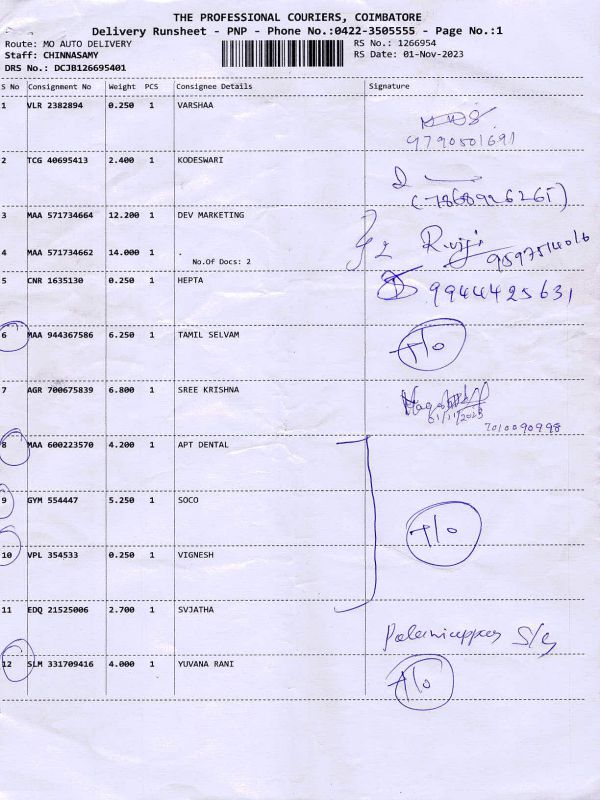 THE PROFESSIONAL COURIERS, COIMBATORE
Delivery Runsheet - PNP - Phone No.:0422-3505555 - Page No.:1
Route: MO AUTO DELIVERY
Staff: CHINNASAMY
DRS No.: DCJB126695401
RS No.: 1266954
RS Date: 01-Nov-2023
S No Consignment No Weight PCS Consignee Details Signature
1 VLR 2382894 0.250 1 VARSHAA
9790501691
2 TCG 40695413 2.400 1 KODESWARI
3 MAA 571734664 12.200 1 DEV MARKETING
4 MAA 571734662 14.000 1
No.Of Docs: 2
9597514016
5 CNR 1635130 0.250 1 HEPTA
9944425631
6 MAA 944367586 6.250 1 TAMIL SELVAM
7 AGR 700675839 6.800 1 SREE KRISHNA
01/11/2023
7010090998
8 MAA 600223570 4.200 1 APT DENTAL
9 GYM 554447 5.250 1 SOCO
10 VPL 354533 0.250 1 VIGNESH
11 EDQ 21525006 2.700 1 SVJATHA
12 SLM 331709416 4.000 1 YUVANA RANI